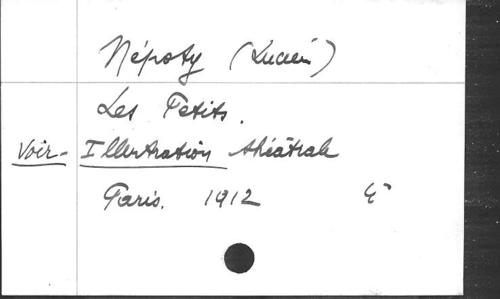 Népoty (Lucien)
Les Petits.
Voir - Illustration théâtrale
Paris. 1912 4°